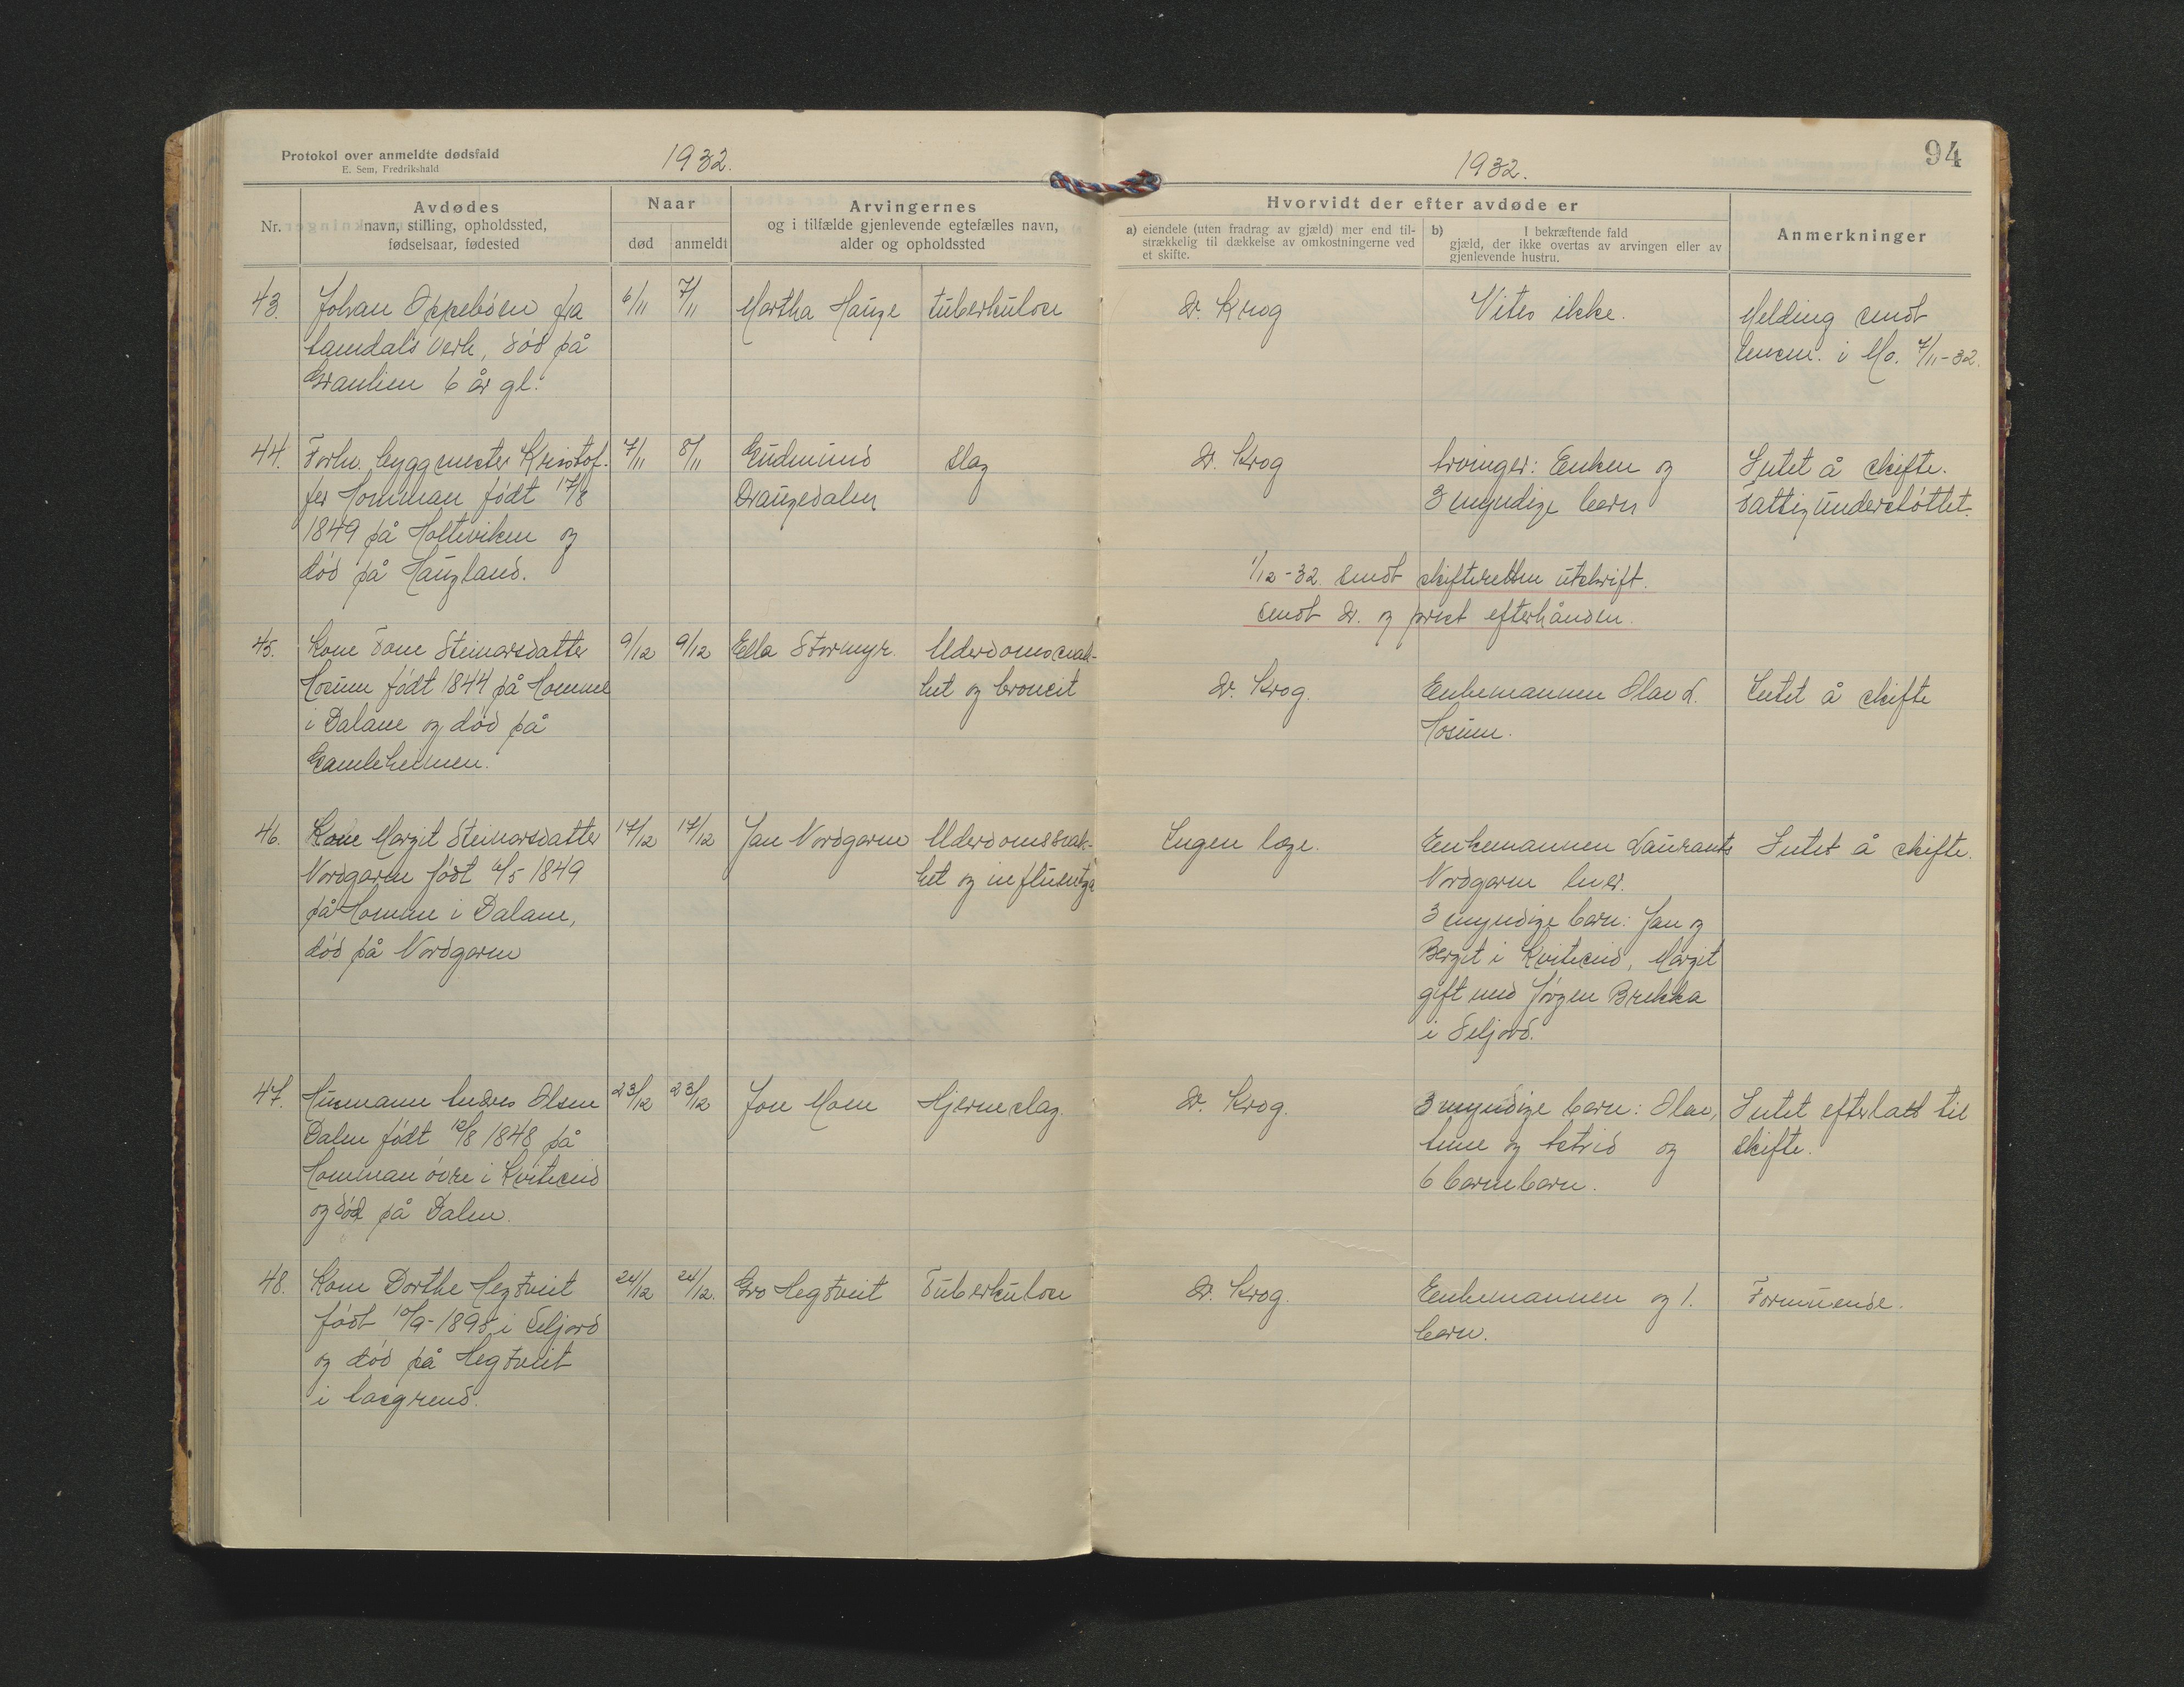 Protokol over anmeldte dødsfald
E. Sem, Fredrikshald
1932.
1932.
94
Nr.
Avdødes
navn, stilling, opholdssted,
fødselsaar, fødested
Naar
død
anmeldt
Arvingernes
og i tilfælde gjenlevende egtefælles navn,
alder og opholdssted
Hvorvidt der efter avdøde er
a) eiendele (uten fradrag av gjæld) mer end til-
strækkelig til dækkelse av omkostningerne ved
et skifte.
b) I bekræftende fald
gjæld, der ikke overtas av arvingen eller av
gjenlevende hustru.
Anmerkninger
43.
Johan Oppebøen fra
Åmdals verk, død på
Granlien 6 år gl.
6/11
7/11
Martha Hauge
tuberkulose
Dr. Krog
Vites ikke.
Melding sendt
lensm. i Mo. 7/11-32.
44.
Forh. byggmester Kristof-
fer Homman født 17/8
1849 på Holteviken og
død på Haugland.
7/11
8/11
Gudmund
Draugedalen
Slag
Dr. Krog
Arvinger: Enken og
3 myndige barn
Intet å skifte.
Fattigunderstøttet.
1/12-32 sendt skifteretten utskrift.
sendt Dr. og prest efterhånden.
45.
Kone Tone Steinarsdatter
Mosum født 1844 på Homme
i Dalane og død på
Gamleheimen.
9/12
9/12
Ella Stormyr.
Alderdomssvak-
het og broncit
Dr. Krog.
Enkemannen Olav L.
Mosum.
Intet å skifte
46.
Kone Margit Steinarsdatter
Nordgaren født 6/5 1849
på Homme i Dalane,
død på Nordgaren
17/12
17/12
Jan Nordgaren
Alderdomssvak-
het og influentza
Ingen læge.
Enkemannen Laurants
Nordgaren lever.
3 myndige barn: Jan og
Berget i Kviteseid, Margit
gift med Jørgen Brekka
i Seljord.
Intet å skifte.
47.
Husmann Anders Olsen
Dalen født 12/8 1848 på
Homman øvre i Kviteseid
og død på Dalen.
23/12
23/12
Jon Moen
Hjerneslag.
Dr. Krog.
3 myndige barn: Olav,
Anne og Astrid og
6 barnebarn.
Intet efterlatt til
skifte.
48.
Kone Dorthe Hegtveit
født 10/9-1895 i Seljord
og død på Hegtveit
i Åsgrend.
24/12
24/12.
Gro Hegtveit
Tuberkulose
Dr. Krog.
Enkemannen og 1.
barn.
Formuende.